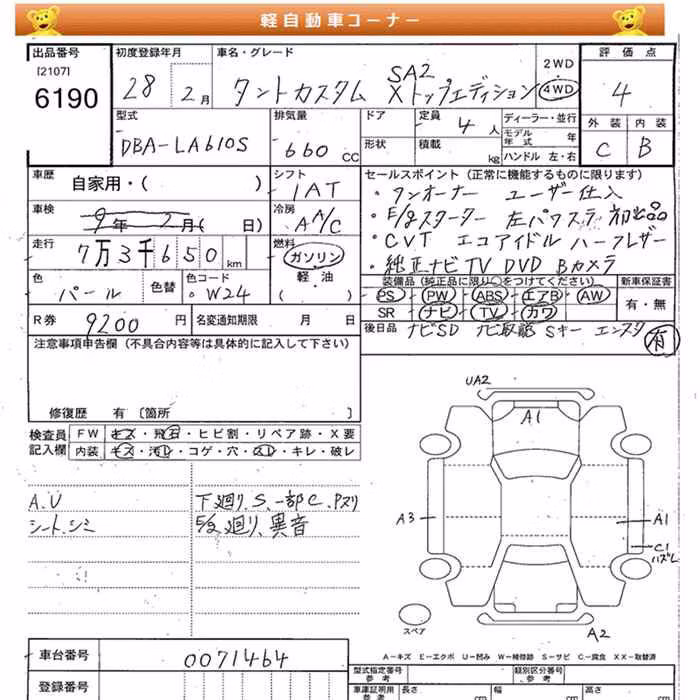 軽自動車コーナー
出品番号 初度登録年月 車名・グレード 2WD 評価点
[2107]
6190 28 2月 タントカスタム SA2 Xトップエディション 4WD 4
型式 排気量 ドア 定員 4人 ディーラー・並行 外装 内装
DBA-LA610S 660CC 形状 積載 kg モデル年式 年 C B
ハンドル 左・右
車歴 自家用・( ) シフト 1AT セールスポイント(正常に機能するものに限ります)
・ワンオーナー ユーザー仕入
車検 9年2月( 日) 冷房 AA/C ・E/gスターター 左パワスラ
・CVT エコアイドル ハーフレザー
走行 7万3千650km 燃料 ガソリン
軽・油
( )
・純正ナビTV DVD Bカメラ
色 パール 色替 色コード W24 装備品(純正品に限り○をつけてください) 新車保証書
PS PW ABS エアB AW 有・無
SR ナビ TV カワ
R券 9200円 名変通知期限 月 日 後日品 ナビSD Sキー 有
注意事項申告欄(不具合内容等は具体的に記入して下さい)
修復歴 有〔箇所 〕
検査員 FW キズ・飛石・ヒビ割・リペア跡・X要
記入欄 内装 キズ・汚レ・コゲ・穴・スレ・キレ・破レ
A.U 下廻り.S.一部C.Pズリ
シート.シミ E/g廻り.異音
UA2
A1
A3
A1
C1
ハズレ
スペア
A2
A-キズ E-エクボ U-凹み W-補修跡 S-サビ C-腐食 XX-取替済
車台番号 0071464
型式指定番号 参考 類別区分番号 参考
登録番号 車庫証明用参考 長さ cm 幅 cm 高さ cm